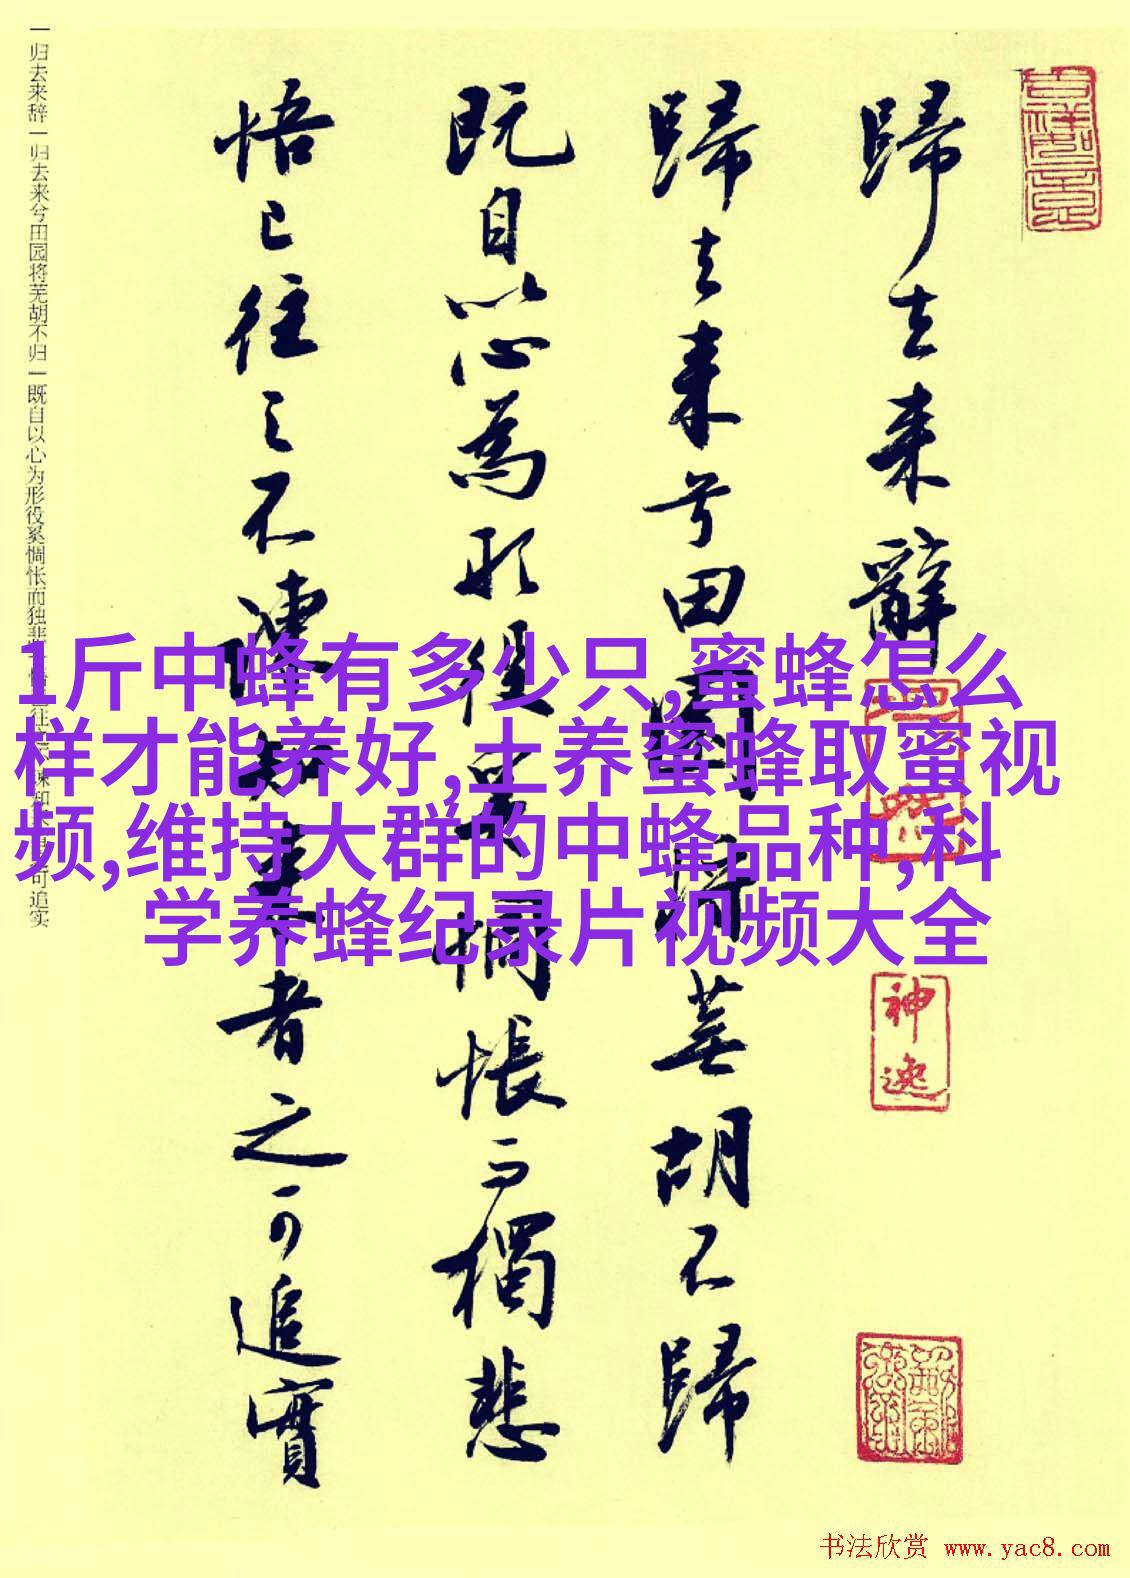 歸去来辭
歸去来兮田園将蕪胡不歸
既自以心為形役奚惆悵而獨悲
悟已往之不諫知来者之可追實
一归去来辞一归去来兮田园将芜胡不归一既自以心为形役奚惆怅而独悲
往
可追实
1斤中蜂有多少只,蜜蜂怎么
样才能养好,土养蜜蜂取蜜视
频,维持大群的中蜂品种,科
学养蜂纪录片视频大全
神逸
书法欣赏 www.yac8.com